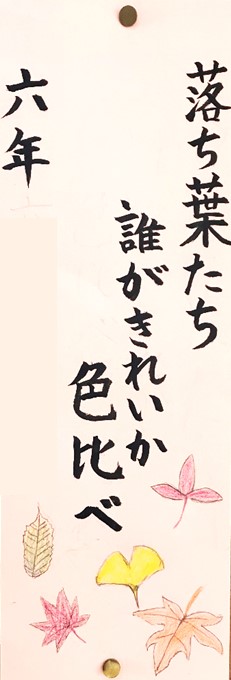 落ち葉たち
誰がきれいか
色比べ
六年